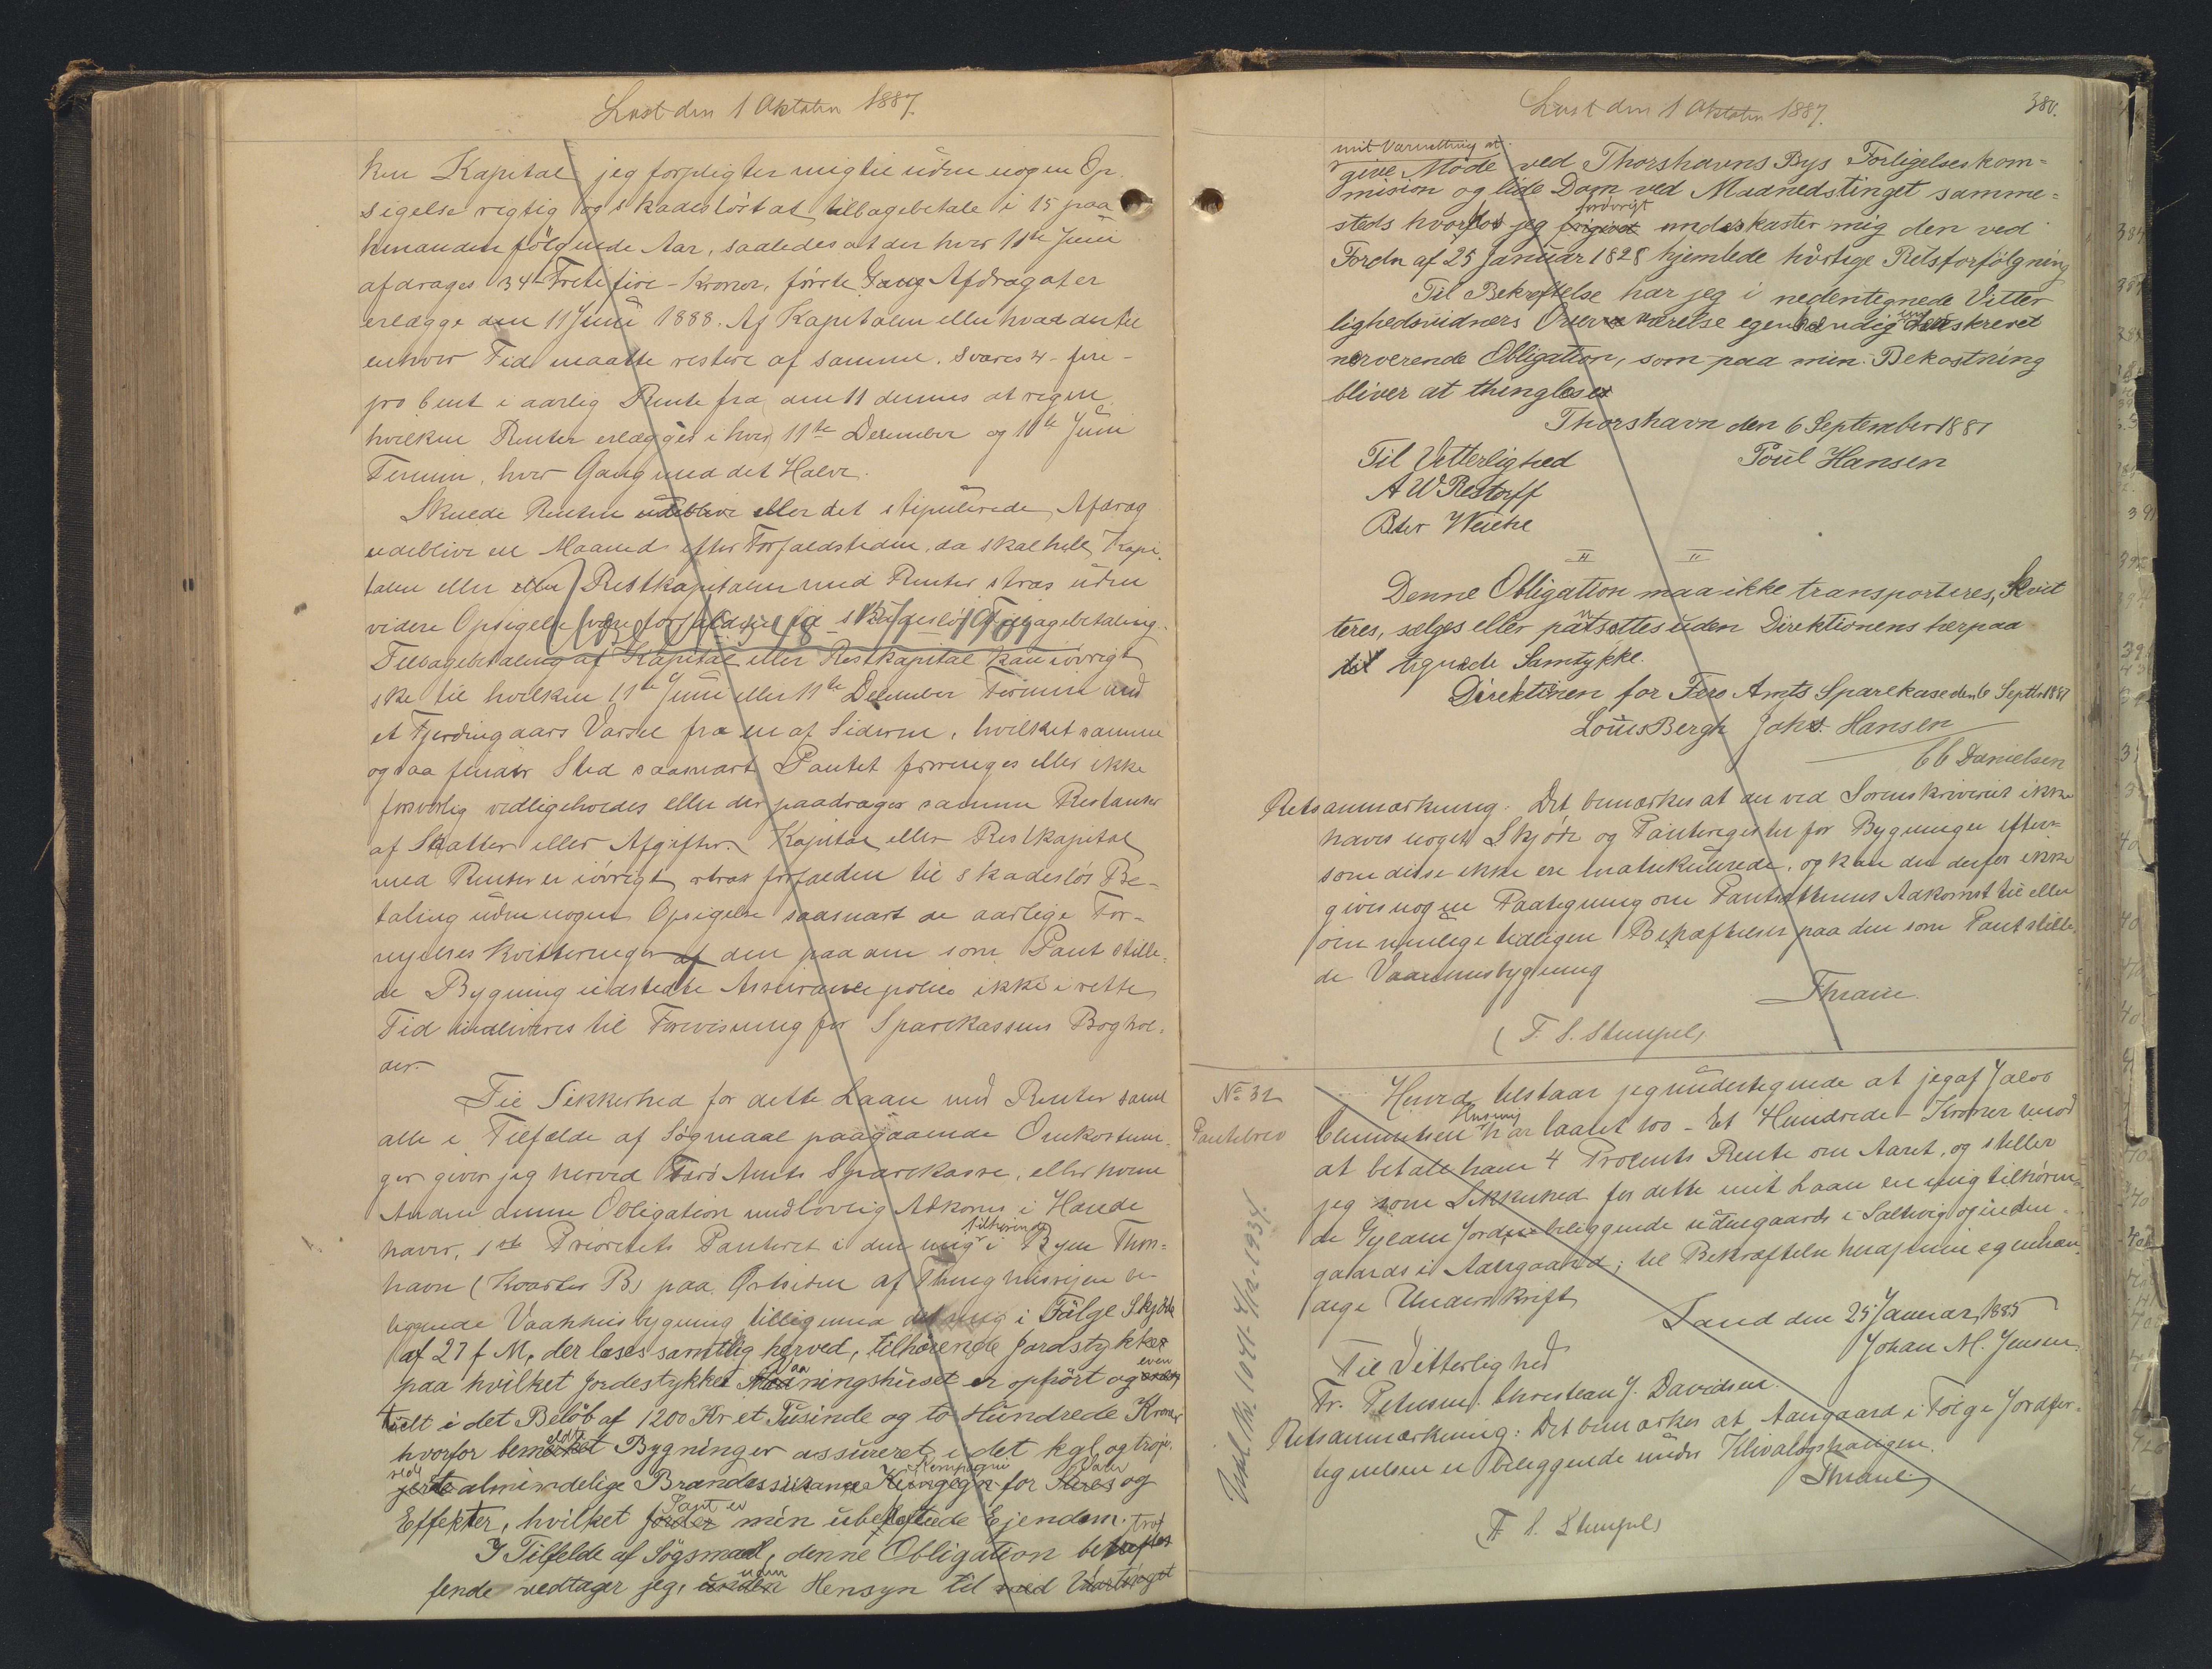 Læst den 1 Oktober 1887.
ken Kapital jeg forpligter mig til uden nogen Op-
sigelse rigtig og skadesløst at tilbagebetale i 15 paa
hinanden følgende Aar, saaledes at der hver 11te Juni
afdrages 34 - Treti fire - Kroner, første Gang Afdraget er
erlægge den 11 Juni 1888. Af Kapitalen eller hvad der til
enhver Tid maatte restere af samme, svares 4 - fire -
pro Cent i aarlig Rente fra den 11 dennes at regne,
hvilken Renter erlægges i hver 11te December og 11te Juni
Termin, hver Gang med det Halve.
Skulde Renten udeblive eller det stipulerede Afdrag
udeblive en Maaned efter Forfaldstiden, da skal hele Kapi-
talen eller eller Restkapitalen med Renter strax uden
videre Opsigelse være forfalden til skadesløs Tilbagebetaling.
Tilbagebetaling af Kapital eller Restkapital kan iøvrigt
ske til hvilken 11te Juni eller 11te December Termin med
et Fjerdingaars Varsel fra en af Siderne, hvilket samme
ogsaa finder Sted saasnart Pantet forringes eller ikke
forsvarlig vedligeholdes eller der paadrages samme Restantser
af Skatter eller Afgifter. Kapital eller Restkapital
med Renter er iøvrigt strax forfalden til skadesløs Be-
taling uden nogen Opsigelse saasnart de aarlige For-
nyelses Kvitteringer af den paa den som Pant stille-
de Bygning udstedte Assurance police ikke i rette
Tid indleveres til Forevisning for Sparekassens Boghol-
der.-
Til Sikkerhed for dette Laan med Renter samt
alle i Tilfælde af Søgmaal paagaaende Omkostnin-
ger giver jeg herved Færø Amts Sparekasse, eller hvem
Anden denne Obligation med lovlig Adkomst i Hænde
haver, 1ste Prioritets Panteret i den mig tilhørende i Byen Thors-
havn (Kvarter B) paa Østsiden af Thinghusvejen be-
liggende Vaanhusbygning tilligemed det mig i Følge Skjøde
af 27 f M, der læses samtlig herved, tilhørende Jordstykker
paa hvilket Jordestykke Vaaningshuset er opført og even
tielt i det Beløb af 1200 Kr et Tusinde og to Hundrede Kroner
hvorfor bemeldte Bygninger assureret i det kgl. og troje.
rede almindelige Brandassurance Kompagni for Varer og
Effekter, hvilket Pant er min ubehæftede Ejendom.
I Tilfælde af Søgsmaal, denne Obligation betref
fende vedtager jeg, uden Hensyn til med Værtinget
Læst den 1 Oktober 1887.
380.
mit Varnetting at
give Møde ved Thorshavns Bys Forligelseskom-
mision og lide Dom ved Maanedstinget samme-
steds hvorfor jeg forøvrigt underkaster mig den ved
Fordn af 25 Januar 1828 hjemlede hurtige Retsforfølgning
Til Bekræftelse har jeg i nedentegnede Vitter
lighedsvidners Overværelse egenhændig underskrevet
nærverende Obligation, som paa min Bekostning
bliver at thinglæses
Thorshavn den 6 September 1887
Til Vitterlighed Poul Hansen
A W Restorff
Peter Weihe
Denne Obligation maa ikke transporteres, kvit
teres, sælges eller pantsættes uden Direktionens herpaa
til tegnede Samtykke.
Direktionen for Færø Amts Sparekasse den 6 Septbr 1887
Louis Bergh Johs. Hansen
C C Danielsen
Retsanmærkning. Det bemærkes at der ved Sorenskriveriet ikke
haves noget Skjøde og Panteregister for Bygninger efter-
som disse ikke ere matrikulerede, og kan der derfor ikke
gives nogen Paategning om Pantsætterens Adkomst til eller
om mulige tidligere Behæftelser paa den som Pant stille-
de Vaanhusbygning
Thrane
(T. S. Stempel)
No 32
Pantebrev
Herved tilstaar jeg undertegnede at jeg af Jacob
Clementsen Husevig har laant 100 - Et Hundrede - Kroner imod
at betale ham 4 Procents Rente om Aaret, og stiller
jeg som Sikkerhed for dette mit Laan en mig tilhøren-
de Gylden Jord beliggende udengaards i Saltvig og inden-
gaards i Aargaard; til Bekræftelse heraf min egenhæn-
dige Underskrift
Sand den 25 Januar 1885
Johan M. Jensen
Til Vitterlighed
Fr. Petersen. Christian J. Davidsen.
Retsanmærkning: Det bemærkes at Aargaard i Følge Jordfor-
tegnelsen er beliggende under Klivaløgshaugen.
Thrane
(T. S. Stempel)
Udsl. Nr. 1041- 4/12-1934.